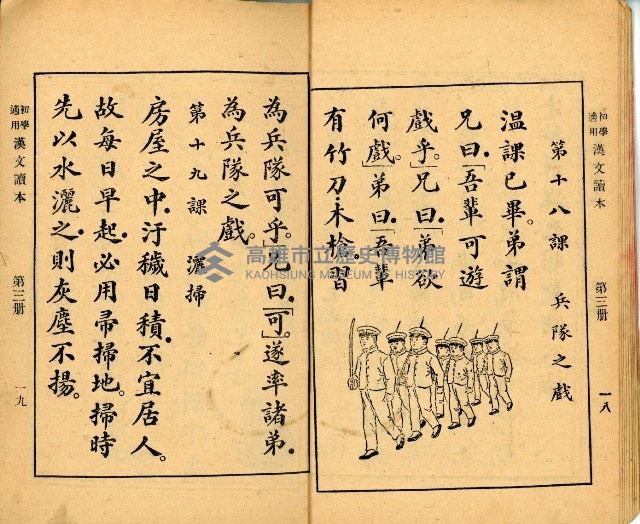 初學適用 漢文讀本 第三册 一八
第十八課 兵隊之戲
溫課已畢。弟謂
兄曰.「吾輩可遊
戲乎.」兄曰.「弟欲
何戲.」弟曰.「吾輩
有竹刀.木槍.習
為兵隊可乎.」兄曰.「可」。遂率諸弟.
為兵隊之戲。
第十九課 灑掃
房屋之中.汙穢日積.不宜居人。
故每日早起.必用帚掃地。掃時
先以水灑之.則灰塵不揚。
初學適用 漢文讀本 第三册 一九
高雄市立歷史博物館
KAOHSIUNG MUSEUM OF HISTORY